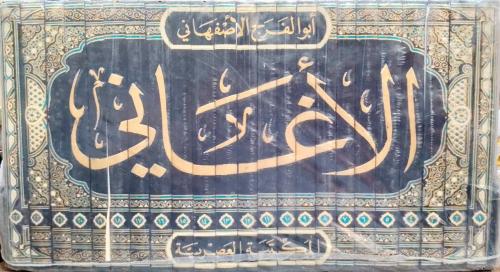 أبو الفرج الأصفهاني
الأغاني
المكتبة العصرية